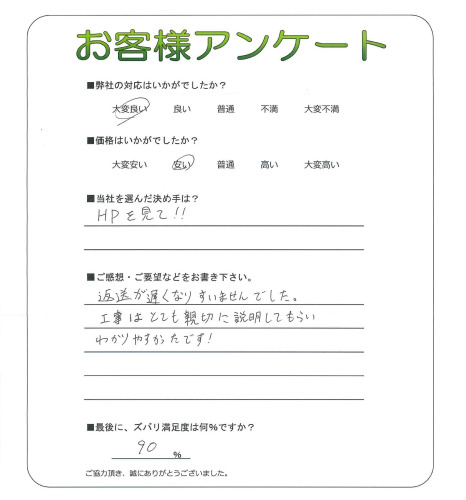 お客様アンケート
■弊社の対応はいかがでしたか?
大変良い 良い 普通 不満 大変不満
■価格はいかがでしたか?
大変安い 安い 普通 高い 大変高い
■当社を選んだ決め手は?
HPを見て!!
■ご感想・ご要望などをお書き下さい。
返送が遅くなりすいませんでした。
工事はとても親切に説明してもらい
わかりやすかったです!
■最後に、ズバリ満足度は何%ですか?
90 %
ご協力頂き、誠にありがとうございました。